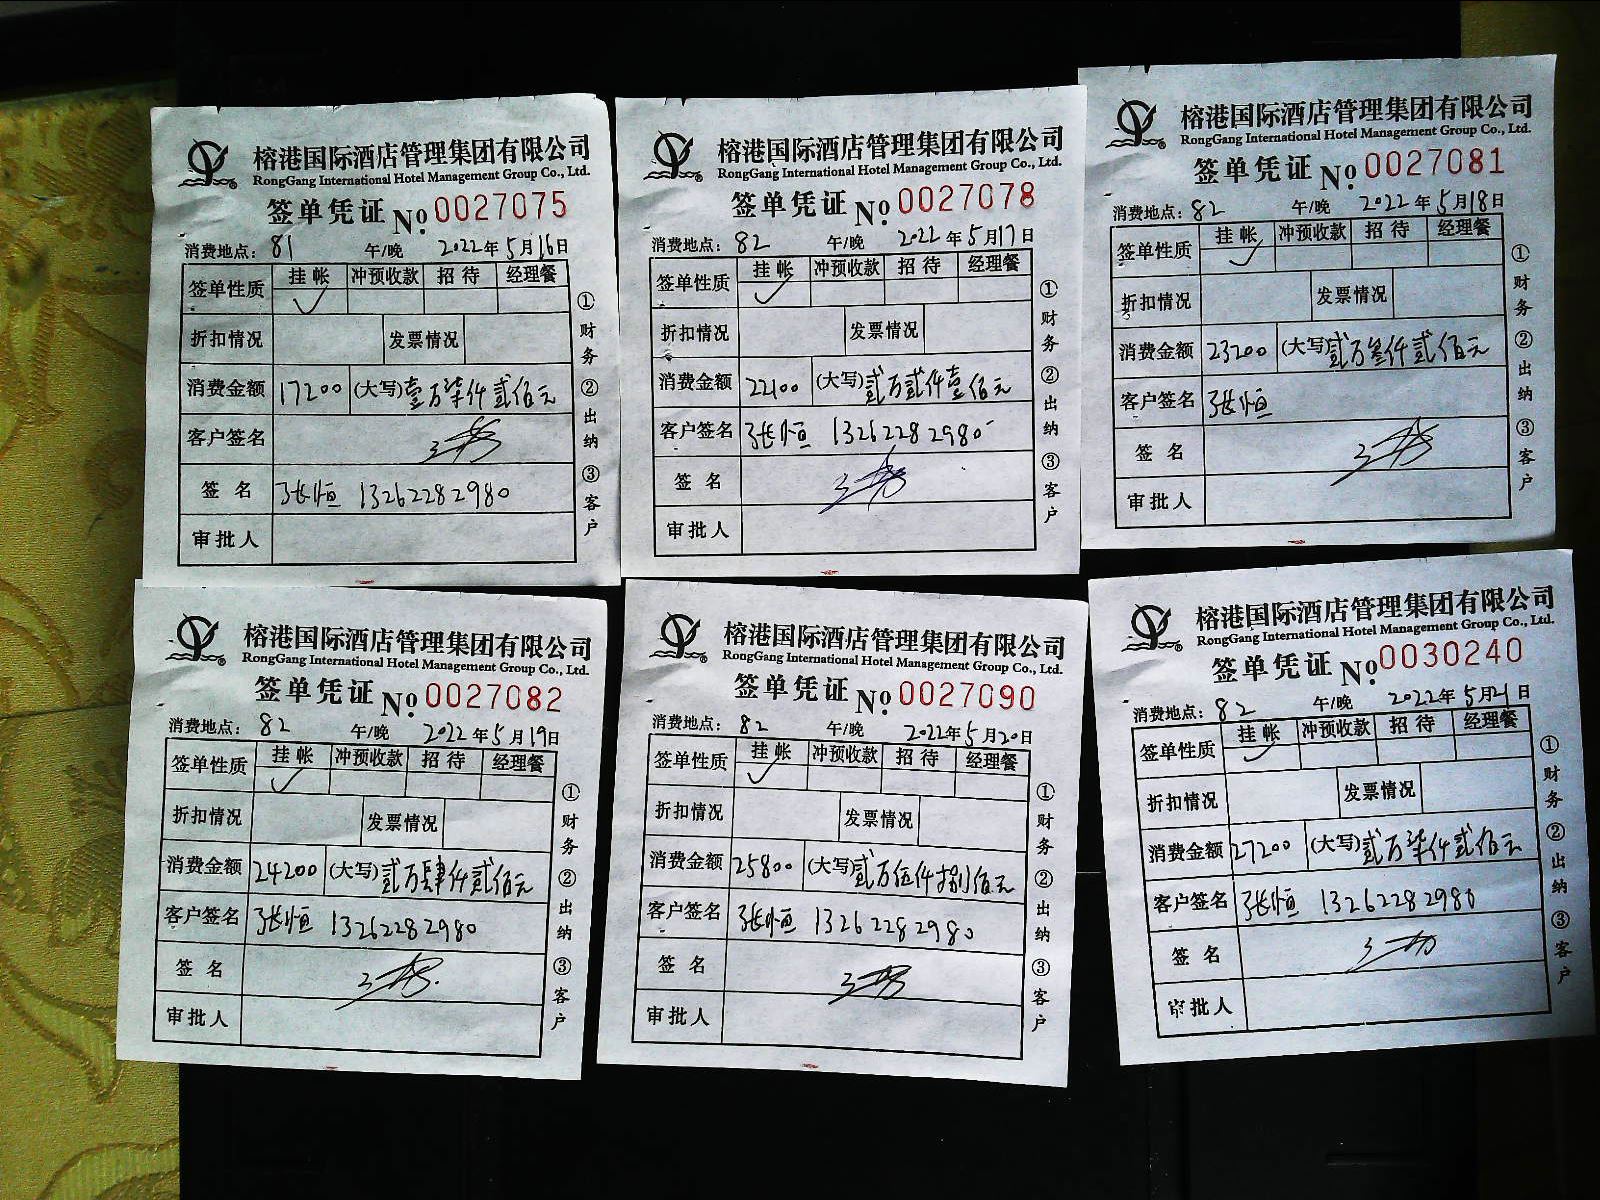 榕港国际酒店管理集团有限公司
RongGang International Hotel Management Group Co., Ltd.
签单凭证 No. 0027075
消费地点: 81 午/晚 2022年5月16日
签单性质 挂帐 冲预收款 招待 经理餐
✓
折扣情况 发票情况
消费金额 17200 (大写)壹万柒仟贰佰元
客户签名
签名 张恒 13262282980
审批人
①财务②出纳③客户
榕港国际酒店管理集团有限公司
RongGang International Hotel Management Group Co., Ltd.
签单凭证 No. 0027078
消费地点: 82 午/晚 2022年5月17日
签单性质 挂帐 冲预收款 招待 经理餐
✓
折扣情况 发票情况
消费金额 22100 (大写)贰万贰仟壹佰元
客户签名 张恒 13262282980
签名
审批人
①财务②出纳③客户
榕港国际酒店管理集团有限公司
RongGang International Hotel Management Group Co., Ltd.
签单凭证 No. 0027081
消费地点: 82 午/晚 2022年5月18日
签单性质 挂帐 冲预收款 招待 经理餐
✓
折扣情况 发票情况
消费金额 23200 (大写)贰万叁仟贰佰元
客户签名 张恒
签名
审批人
①财务②出纳③客户
榕港国际酒店管理集团有限公司
RongGang International Hotel Management Group Co., Ltd.
签单凭证 No. 0027082
消费地点: 82 午/晚 2022年5月19日
签单性质 挂帐 冲预收款 招待 经理餐
✓
折扣情况 发票情况
消费金额 24200 (大写)贰万肆仟贰佰元
客户签名 张恒 13262282980
签名
审批人
①财务②出纳③客户
榕港国际酒店管理集团有限公司
RongGang International Hotel Management Group Co., Ltd.
签单凭证 No. 0027090
消费地点: 82 午/晚 2022年5月20日
签单性质 挂帐 冲预收款 招待 经理餐
✓
折扣情况 发票情况
消费金额 25800 (大写)贰万伍仟捌佰元
客户签名 张恒 13262282980
签名
审批人
①财务②出纳③客户
榕港国际酒店管理集团有限公司
RongGang International Hotel Management Group Co., Ltd.
签单凭证 No. 0030240
消费地点: 82 午/晚 2022年5月21日
签单性质 挂帐 冲预收款 招待 经理餐
✓
折扣情况 发票情况
消费金额 27200 (大写)贰万柒仟贰佰元
客户签名 张恒 13262282980
签名
审批人
①财务②出纳③客户